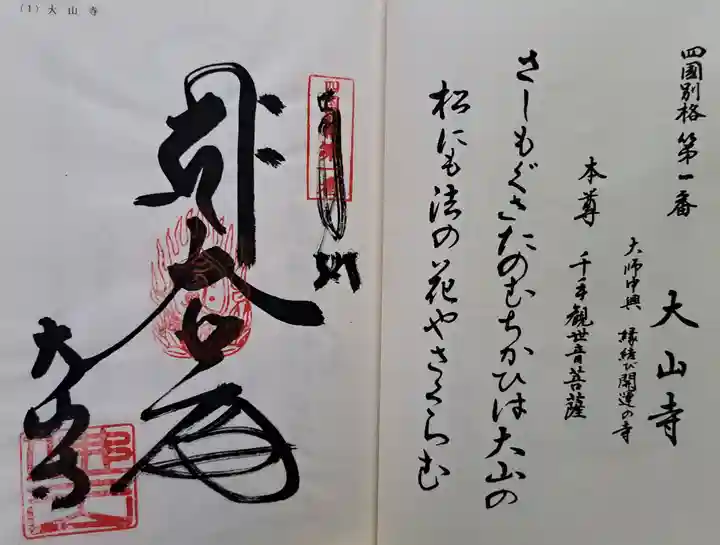 四國別格 第一番 大山寺
大師中興 縁結び開運の寺
本尊 千手観世音菩薩
さしもぐさたのむちかひは大山の
松にも法の花やさくらむ
(1) 大山寺
奉納
大山寺